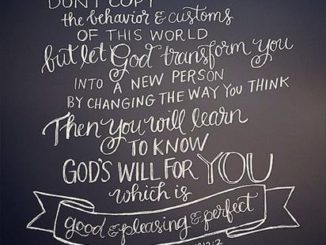 DON'T COPY
the behavior & customs
OF THIS WORLD
but let God transform you
INTO A NEW PERSON
BY CHANGING THE WAY YOU THINK
Then you will learn
TO KNOW
GOD'S WILL FOR YOU
which is
good & pleasing & perfect
12:2